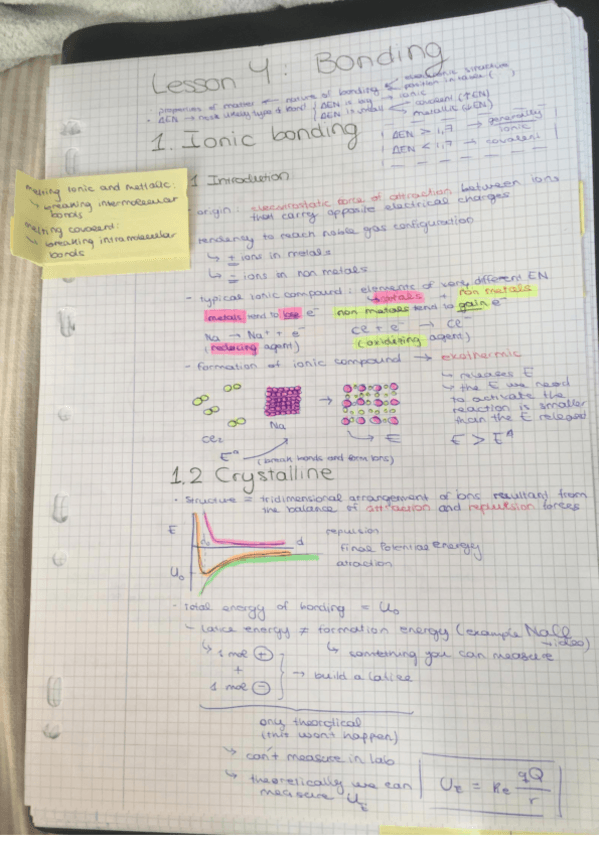 Lesson 4: Bonding
properties of matter ← nature of bonding electronic structure
position in table ( )
ΔEN → most likely type of bond ΔEN is big → ionic
ΔEN is small covalent (↑EN)
metallic (↓EN)
ΔEN > 1,7 → generally ionic
ΔEN < 1,7 → covalent
1. Ionic bonding
melting ionic and metallic:
↳ breaking intermolecular
bonds
melting covalent:
↳ breaking intramolecular
bonds
1 Introduction
origin: electrostatic force of attraction between ions
that carry opposite electrical charges
tendency to reach noble gas configuration
↳ + ions in metals
↳ − ions in non metals
- typical ionic compound: elements of very different EN
↳ metals + non metals
metals tend to lose e⁻ non metals tend to gain e⁻
Na → Na⁺ + e⁻ Cl + e⁻ → Cl⁻
(reducing agent) (oxidizing agent)
- formation of ionic compound → exothermic
↳ releases E
↳ the E we need
to activate the
reaction is smaller
than the E released
Cl₂ Na → ↳ E E > Eᴬ
Eᵃ (break bonds and form ions)
1.2 Crystalline
· structure = tridimensional arrangement of ions resultant from
the balance of attraction and repulsion forces
E d repulsion
Final Potential energy
U₀ attraction
· Total energy of bonding = U₀
- lattice energy ≠ formation energy (example NaCl
↳ 1 mol ⊕ ↳ something you can measure
+ → build a lattice
1 mol ⊖
only theoretical
(this won't happen)
↳ can't measure in lab
↳ theoretically we can
measure U_E
U_E = Ke qQ/r